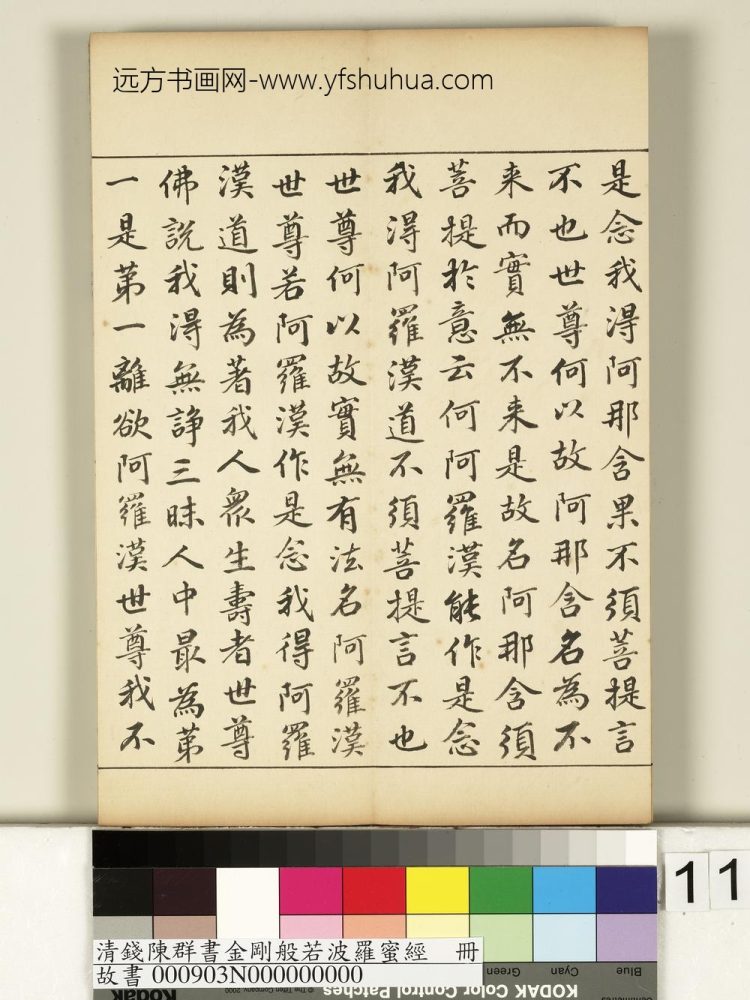 远方书画网-www.yfshuhua.com
是念我得阿那含果不須菩提言
不也世尊何以故阿那含名為不
来而實無不来是故名阿那含須
菩提於意云何阿羅漢能作是念
我得阿羅漢道不須菩提言不也
世尊何以故實無有法名阿羅漢
世尊若阿羅漢作是念我得阿羅
漢道則為著我人眾生壽者世尊
佛說我得無諍三昧人中最為第
一是第一離欲阿羅漢世尊我不
11
清錢陳群書金剛般若波羅蜜經 冊
故書 000903N000000000
Green
Cyan
Blue
KODAK Color Control Patches
Kodak
© The Tiffen Company, 2000